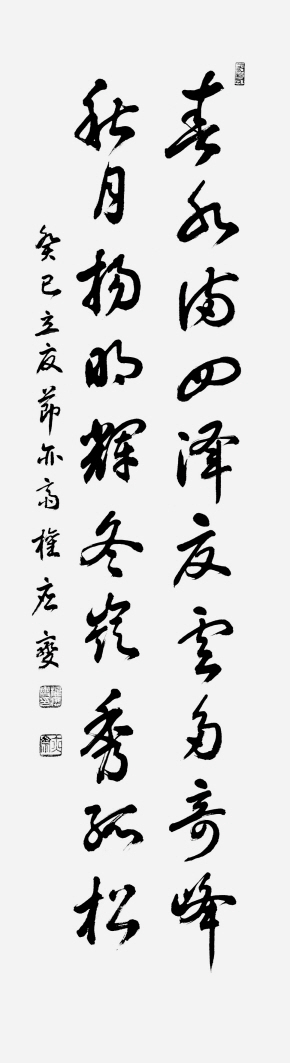 春水满四泽夏云多奇峰
秋月扬明辉冬岭秀孤松
癸巳立夏节亦斋权应燮